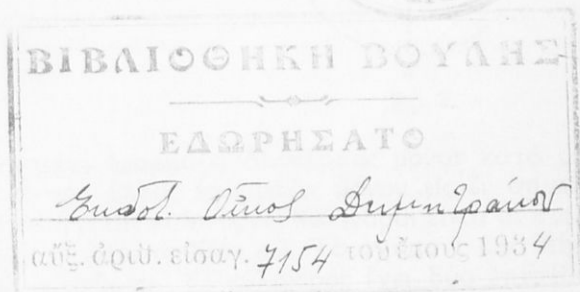 ΒΙΒΛΙΟΘΗΚΗ ΒΟΥΛΗΣ
ΕΔΩΡΗΣΑΤΟ
Εκδοτ. Οἶκος Δημητράκου
αὔξ. ἀριθ. εἰσαγ. 7154 τοῦ ἔτους 1954